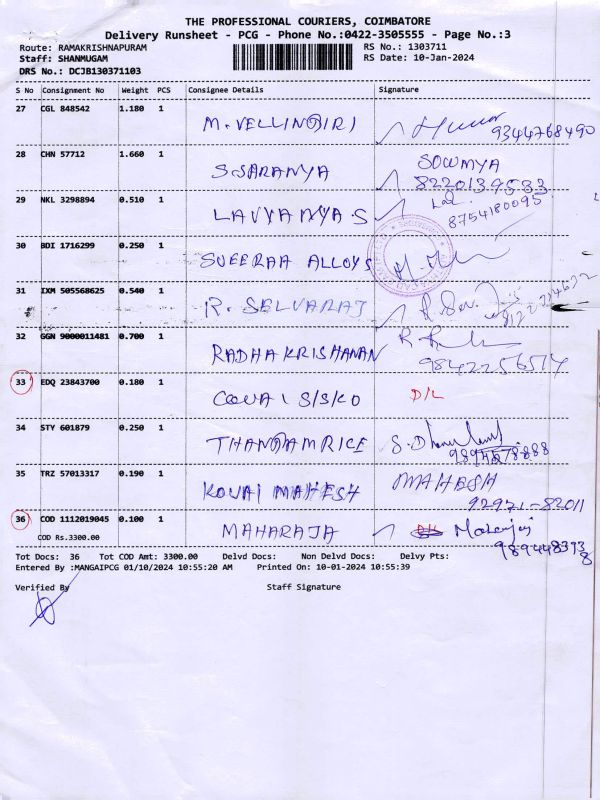 THE PROFESSIONAL COURIERS, COIMBATORE
Delivery Runsheet - PCG - Phone No.:0422-3505555 - Page No.:3
Route: RAMAKRISHNAPURAM RS No.: 1303711
Staff: SHANMUGAM RS Date: 10-Jan-2024
DRS No.: DCJB130371103
S No Consignment No Weight PCS Consignee Details Signature
27 CGL 848542 1.180 1 M.VELLINGIRI 9344768490
28 CHN 57712 1.660 1 S.SARANYA SOWMYA
8220139583
29 NKL 3298894 0.510 1 LAVYANYA.S
8754180095
30 BDI 1716299 0.250 1 SVEERAA ALLOYS
31 IXM 505568625 0.540 1 R. SELVARAJ
32 GGN 9000011481 0.700 1 RADHAKRISHANAN
33 EDQ 23843700 0.180 1 COVAI S/S/KO D/L
34 STY 601879 0.250 1 THANGAMRICE
35 TRZ 57013317 0.190 1 KOVAI MAHESH MAHESH
92971-82011
36 COD 1112019045 0.100 1 MAHARAJA
COD Rs.3300.00
Tot Docs: 36 Tot COD Amt: 3300.00 Delvd Docs: Non Delvd Docs: Delvy Pts:
Entered By :MANGAIPCG 01/10/2024 10:55:20 AM Printed On: 10-01-2024 10:55:39
Verified By Staff Signature